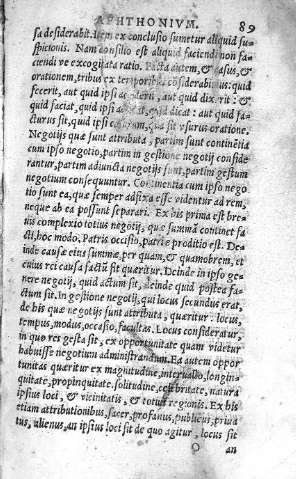 APHTHONIVM. 89
sa desiderabit. Item ex conclusio sumetur aliquid su-
spicionis. Nam consilio est aliquid faciendi non fa-
ciendi ve excogitata ratio. Facta autem, & casus, &
orationem, tribus ex temporibus cōsiderabimus: quid
fecerit, aut quid ipsi acciderit, aut quid dixerit: &
quid faciat, quid ipsi accidat, quid dicat: aut quid fa-
cturus sit, quid ipsi casurum, qua sit vsurus oratione.
Negotijs quæ sunt attributa, partim sunt continētia
cum ipso negotio, partim in gestione negotij conside
rantur, partim adiuncta negotij sunt, partim gestum
negotium consequuntur. Continentia cum ipso nego
tio sunt ea, quæ semper adfixa esse videntur ad rem,
neque ab ea possunt separari. Ex his prima est bre-
uis complexio totius negotij, quæ summā continet fa
cti, hoc modo. Patris occisio, patriæ proditio est. De-
inde causæ eius summæ, per quam, & quamobrem, et
cuius rei causa factū sit quæritur. Deinde in ipso ge-
nere negotij, quid actum sit, deinde quid postea fa-
ctum sit. In gestione negotij, qui locus secundus erat,
de his quæ negotijs sunt attributa, quæritur: locus,
tempus, modus, occasio, facultas. Locus consideratur,
in quo res gesta sit, ex opportunitate quam videtur
habuisse negotium administrandum. Ea autem oppor
tunitas quæritur ex magnitudine, interuallo, longin-
quitate, propinquitate, solitudine, celebritate, natura
ipsius loci, & vicinitatis, & totius regionis. Ex his
etiam attributionibus, sacer, profanus, publicus, priua
tus, alienus, an ipsius loci sit de quo agitur, locus sit
O an